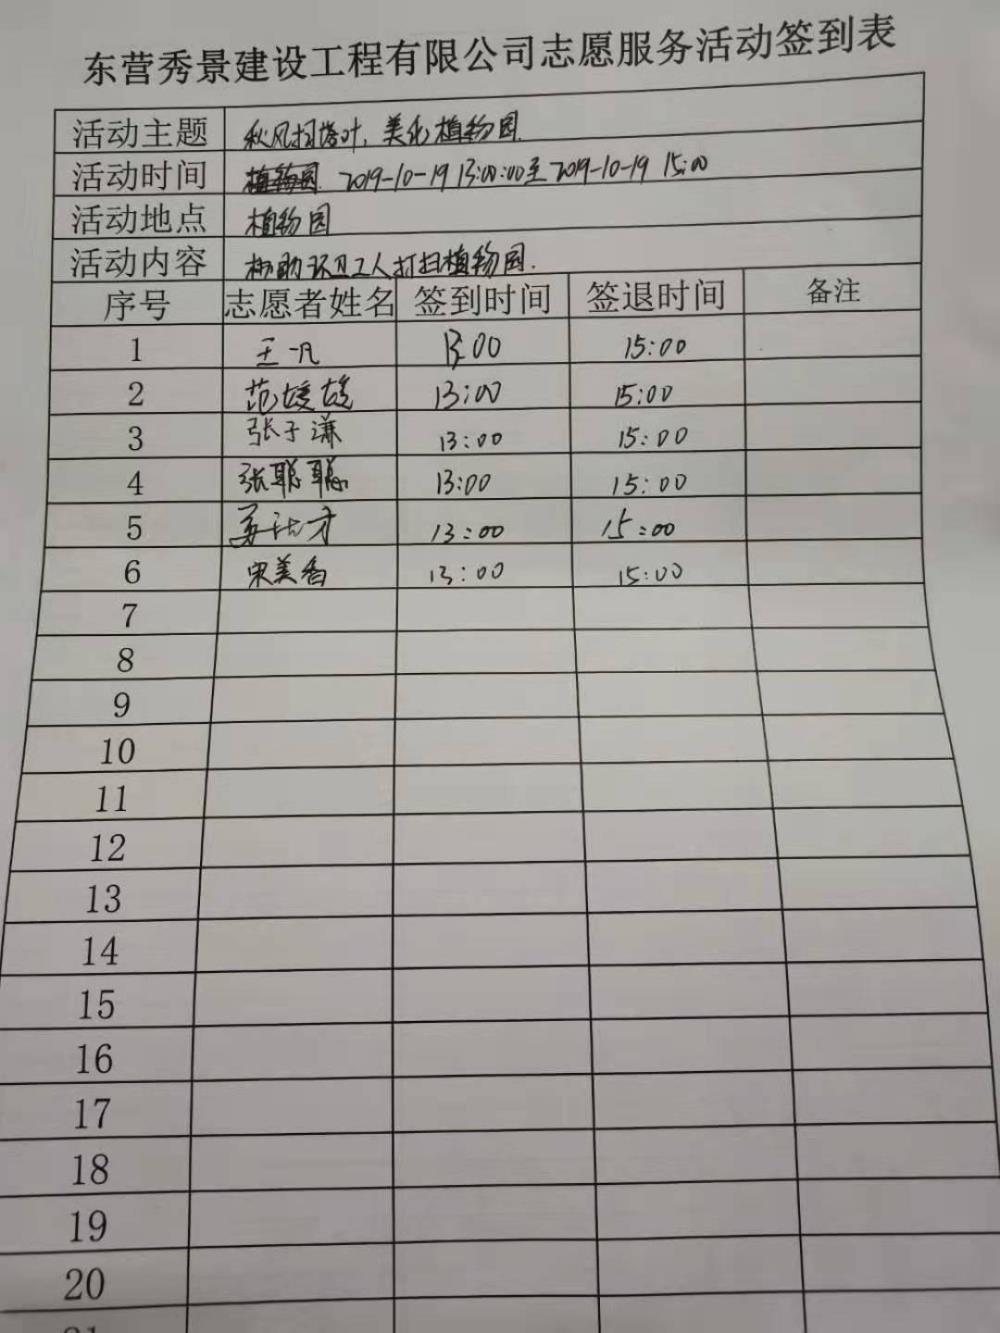 东营秀景建设工程有限公司志愿服务活动签到表
活动主题 秋风扫落叶，美化植物园
活动时间 植物园 2019-10-19 13:00:00至2019-10-19 15:00
活动地点 植物园
活动内容 协助环卫工人打扫植物园.
序号 志愿者姓名 签到时间 签退时间 备注
1 王一凡 13:00 15:00
2 范媛媛 13:00 15:00
3 张子谦 13:00 15:00
4 张聪聪 13:00 15:00
5 13:00 15:00
6 宋美香 13:00 15:00
7
8
9
10
11
12
13
14
15
16
17
18
19
20
21